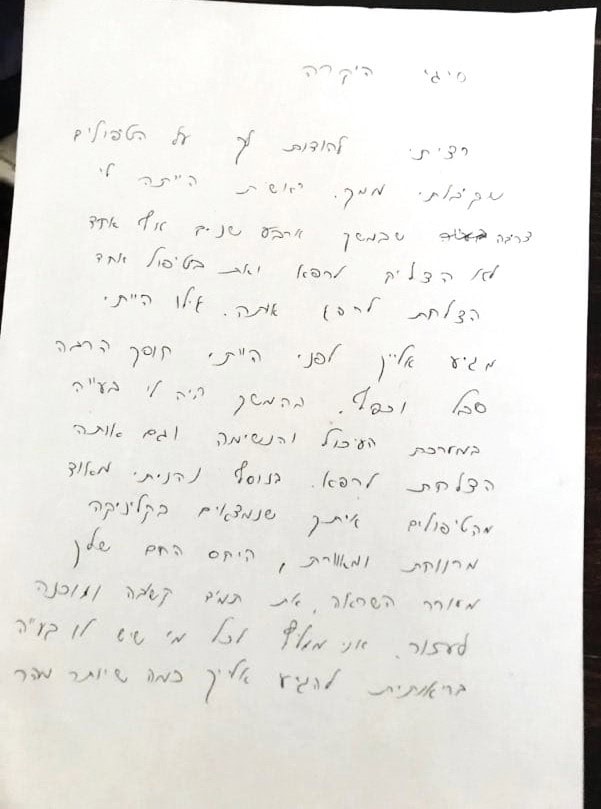 סיגי היקרה
רציתי להודות לך על הטיפולים
שקיבלתי ממך. ראשית הייתה לי
צריבה שבמשך ארבע שנים אף אחד
לא הצליח לרפא ואת בטיפול אחד
הצלחת לרפא אותה. אילו הייתי
מגיע אלייך לפני הייתי חוסך הרבה
סבל וכסף. בהמשך היה לי בעייה
במערכת העיכול והנשימה וגם אותה
הצלחת לרפא. בנוסף נהניתי מאוד
מהטיפולים איתך שנמצאים בקליניקה
מרווחת ומאווררת, היחס החם שלך
מעורר השראה, את תמיד קשובה ומוכנה
לעזור. אני ממליץ לכל מי שיש לו בעייה
בריאותית להגיע אליך כמה שיותר מהר